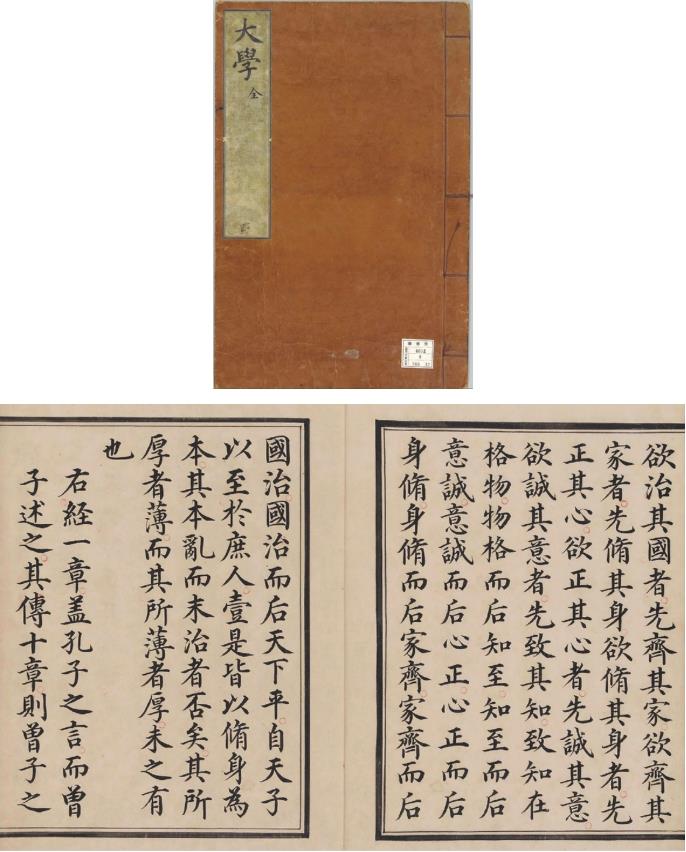 大學
全
欲治其國者先齊其家欲齊其
家者先脩其身欲脩其身者先
正其心欲正其心者先誠其意
欲誠其意者先致其知致知在
格物物格而后知至知至而后
意誠意誠而后心正心正而后
身脩身脩而后家齊家齊而后
國治國治而后天下平自天子
以至於庶人壹是皆以脩身為
本其本亂而末治者否矣其所
厚者薄而其所薄者厚未之有
也
右経一章盖孔子之言而曽
子述之其傳十章則曽子之